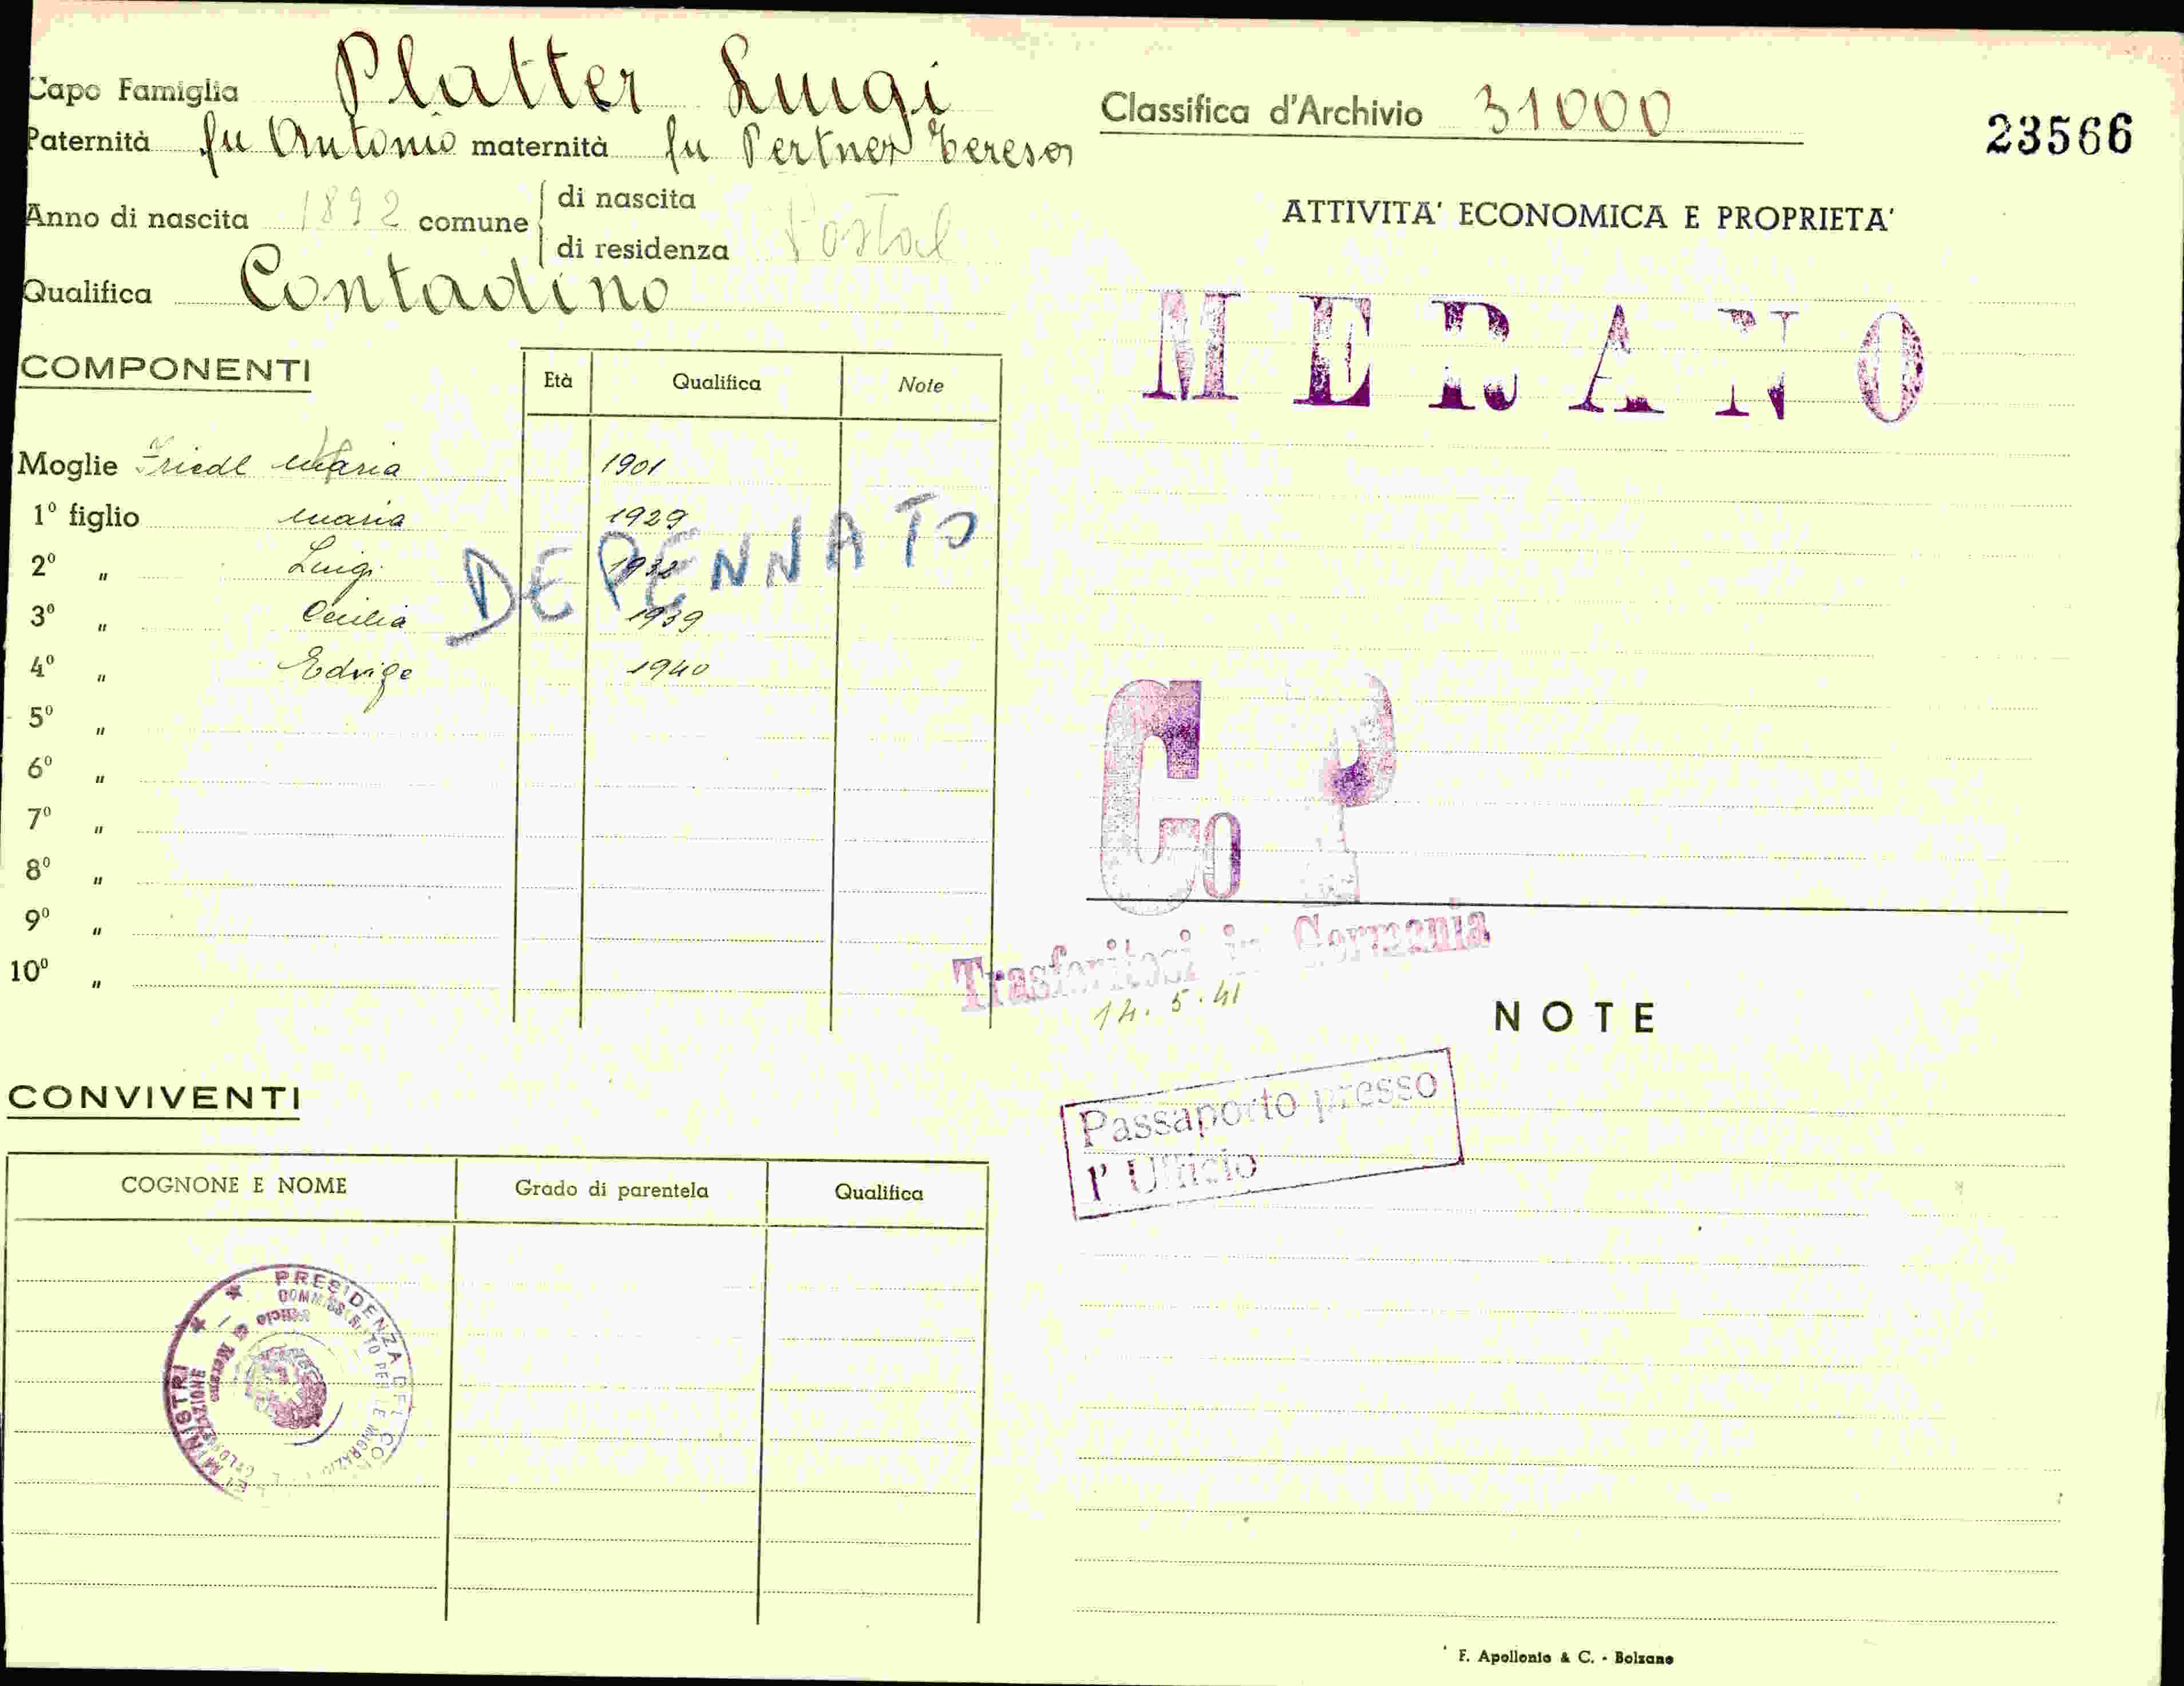 Capo Famiglia Platter Luigi
Paternità fu Antonio maternità fu Pertner Teresa
Anno di nascita 1892 comune di nascita
di residenza Postal
Qualifica Contadino
Classifica d'Archivio 31000
23566
ATTIVITA' ECONOMICA E PROPRIETA'
MERANO
COMPONENTI
Età Qualifica Note
Moglie Friedl Maria 1901
1º figlio Maria 1929
2º " Luigi 1938
3º " Cecilia 1939
4º " Edvige 1940
5º "
6º "
7º "
8º "
9º "
10º "
DEPENNATO
Co P
Trasferitosi in Germania
14.5.41
NOTE
Passaporto presso
l' Ufficio
CONVIVENTI
COGNONE E NOME Grado di parentela Qualifica
PRESIDENZA DEL CONSIGLIO DEI MINISTRI
COMMISSARIATO PER LE MIGRAZIONI E COLONIZZAZIONE
Ufficio di Merano
F. Apollonio & C. - Bolzano